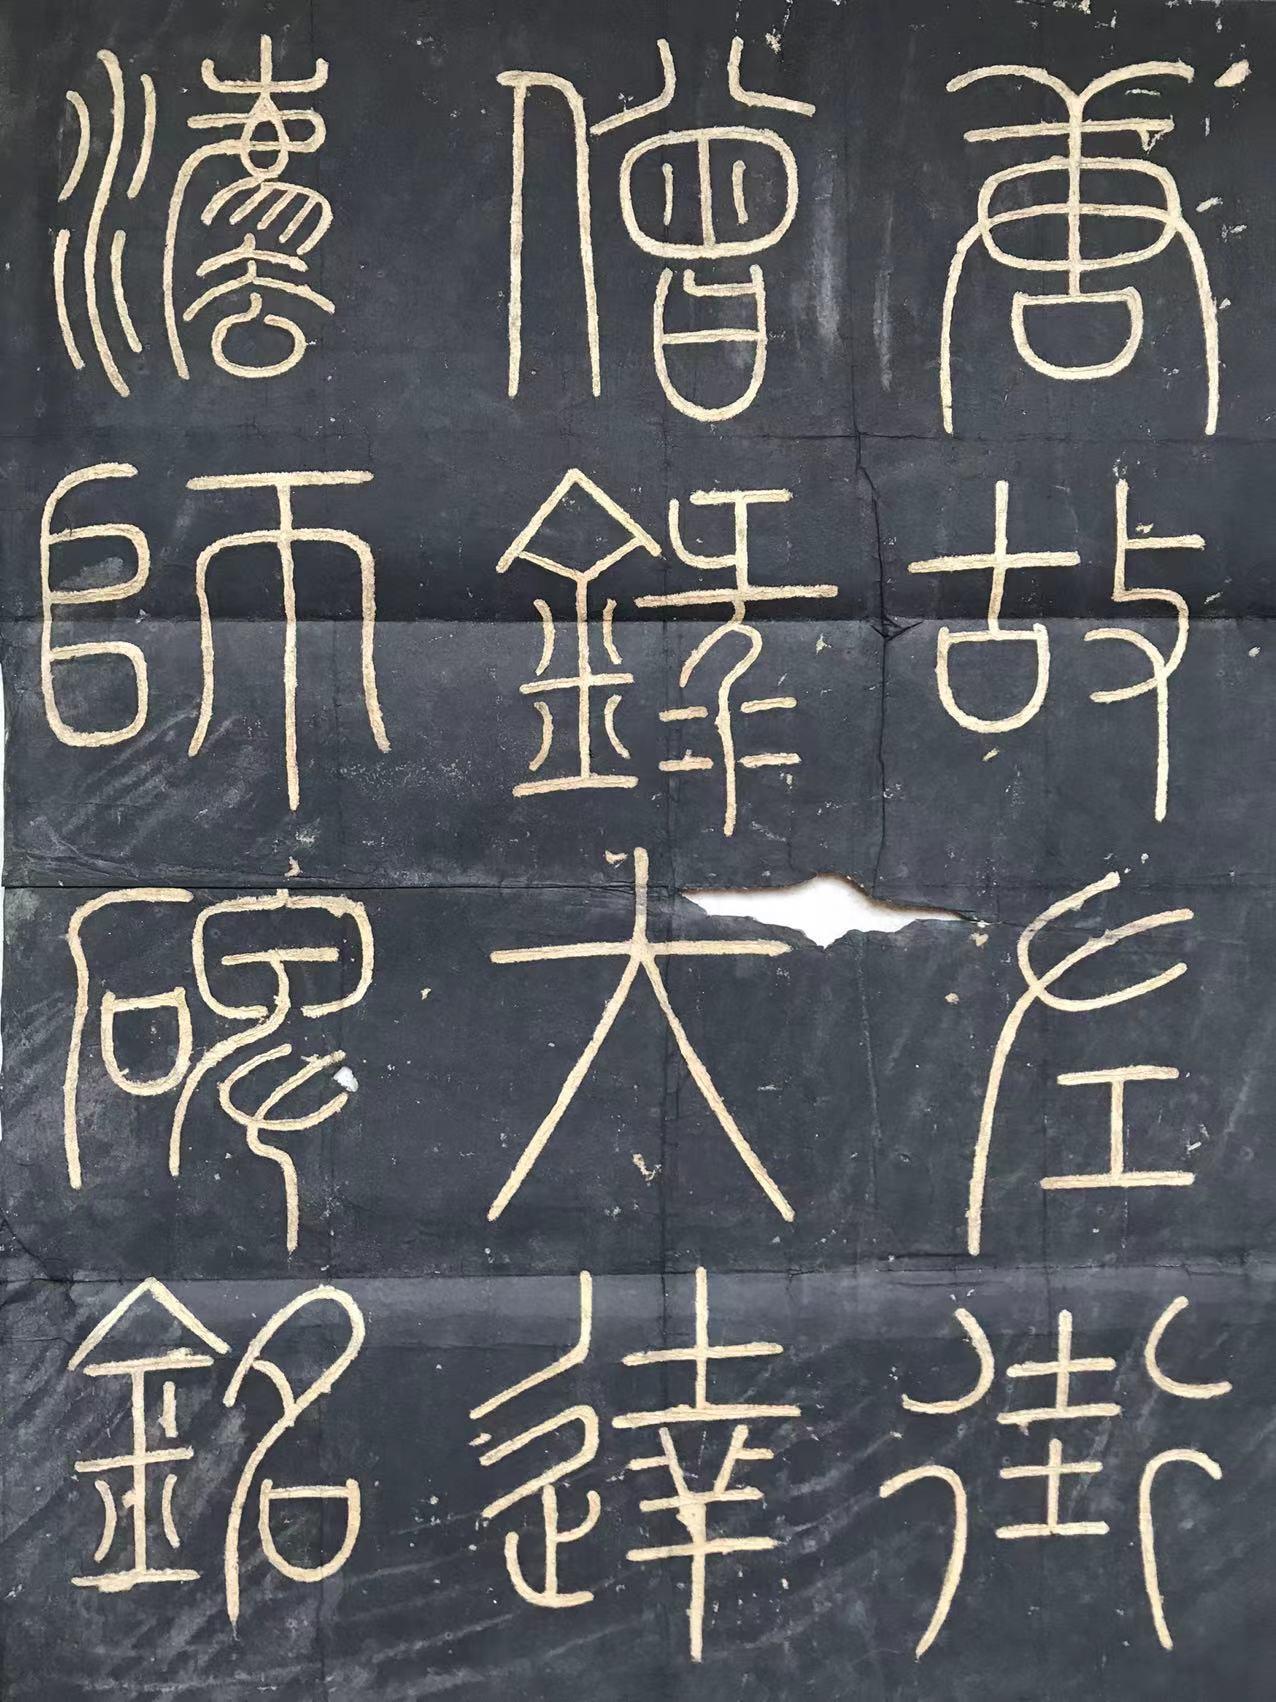 唐故左街
僧錄大達
灋師碑銘